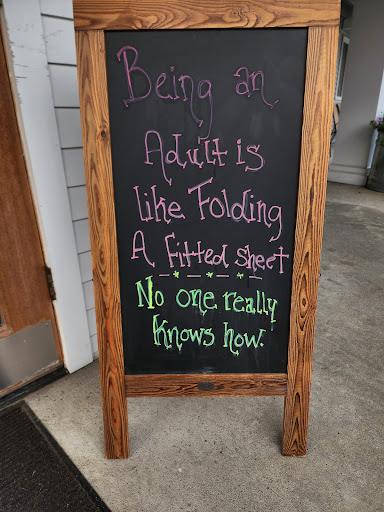 Being an
Adult is
like Folding
A fitted sheet
No one really
knows how.